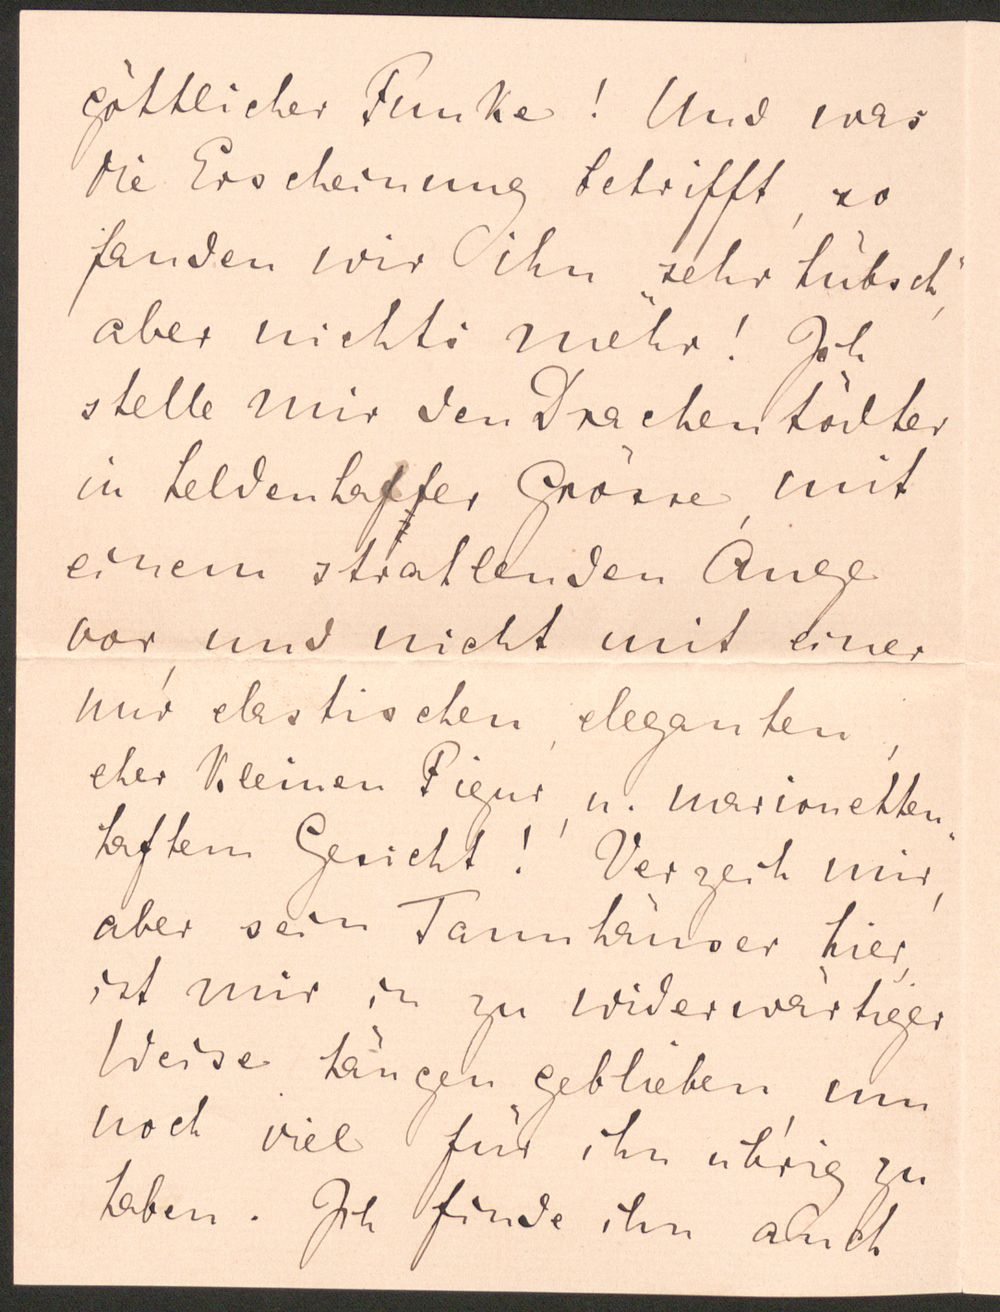 göttlicher Funke! Und was
die Erscheinung betrifft, so
fanden wir ihn „sehr hübsch",
aber nichts mehr! Ich
stelle mir den Drachentödter
in heldenhafter Grösse, mit
einem strahlenden Auge
vor, und nicht mit einer
nur elastischen, eleganten,
eher kleinen Figur, u. marionetten-
haftem Gesicht! Verzeih mir,
aber sein Tannhäuser hier,
ist mir in zu widerwärtiger
Weise hängen geblieben, um
noch viel für ihn übrig zu
haben. Ich finde ihn auch